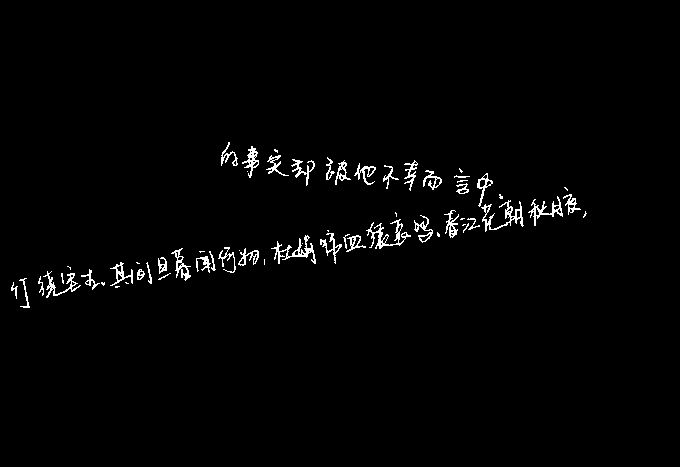 的事实却被他不幸而言中
竹绕宅生。其间旦暮闻何物，杜鹃啼血猿哀鸣。春江花朝秋月夜，